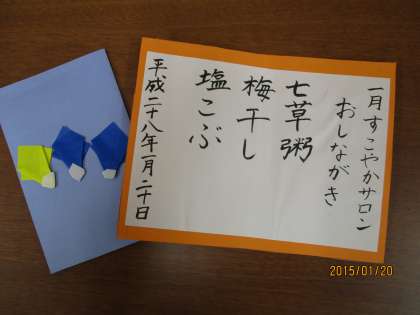 一月すこやかサロン
おしながき
七草粥
梅干し
塩こぶ
平成二十八年一月二十日
2015/01/20